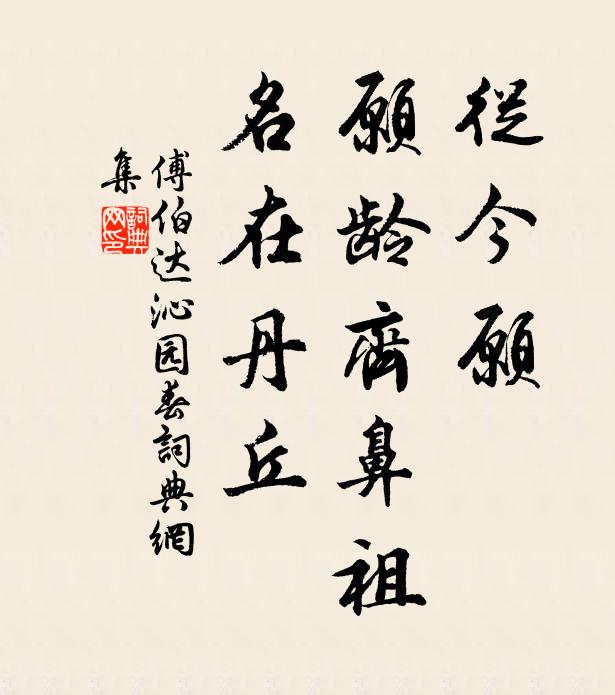 從今願
願龄齊鼻祖
名在丹丘
傅伯达沁园春詞典網
集
詞典网印